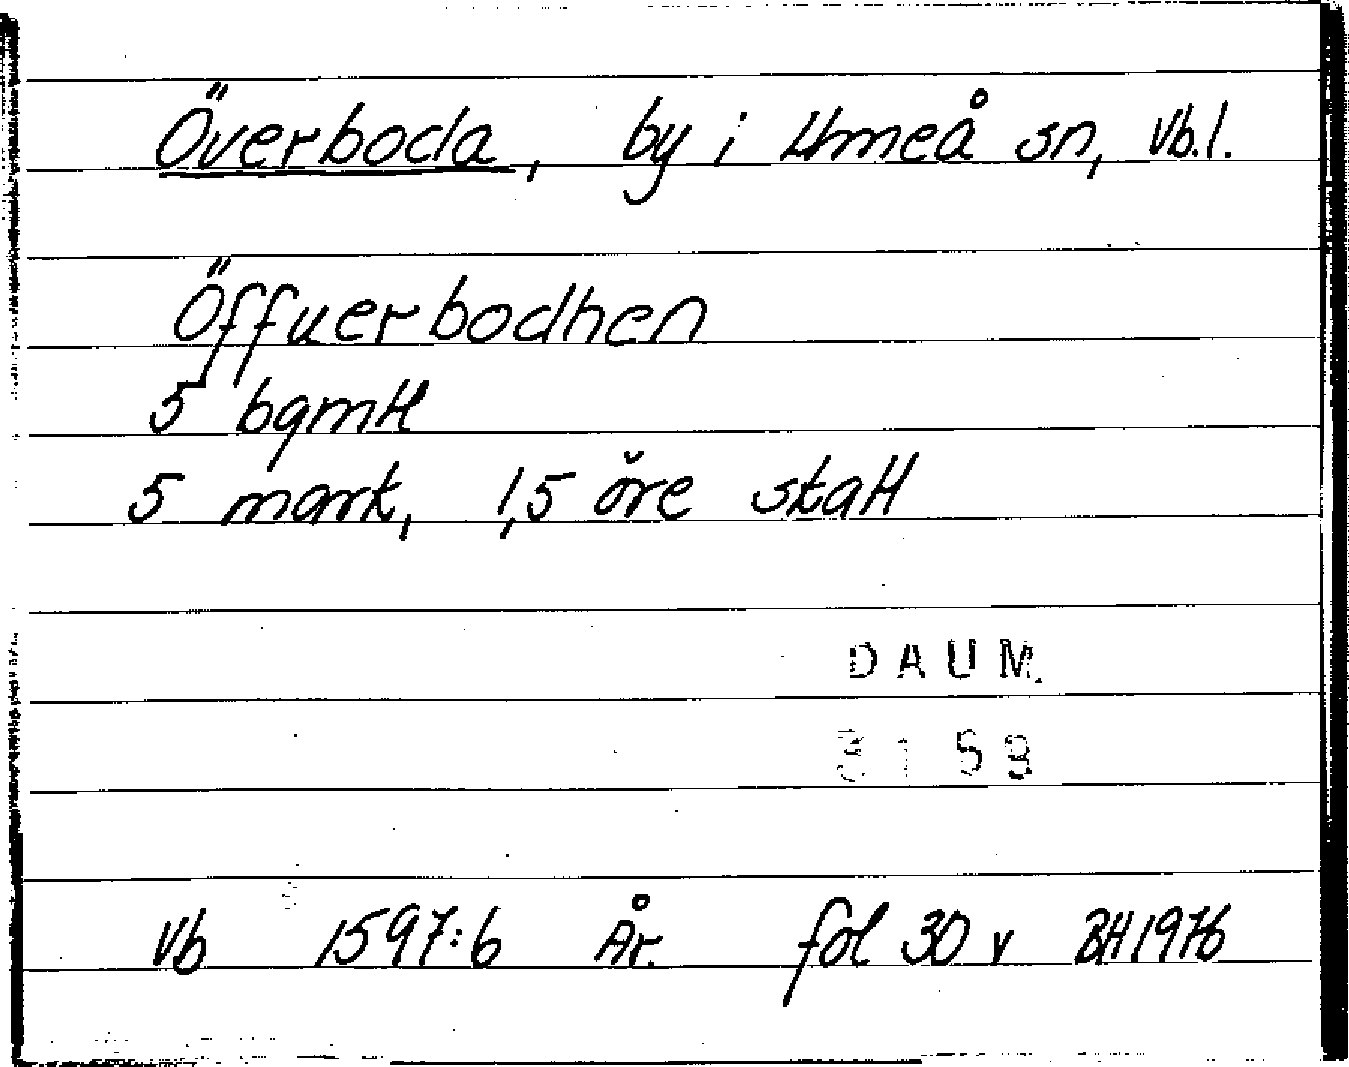 Överboda, by i Umeå sn, Vb.l.
Öffuerbodhen
5 bgmtl
5 mark, 1,5 öre skatt
DAUM.
3159
Vb 1597:6 År. fol 30 v BH 1976